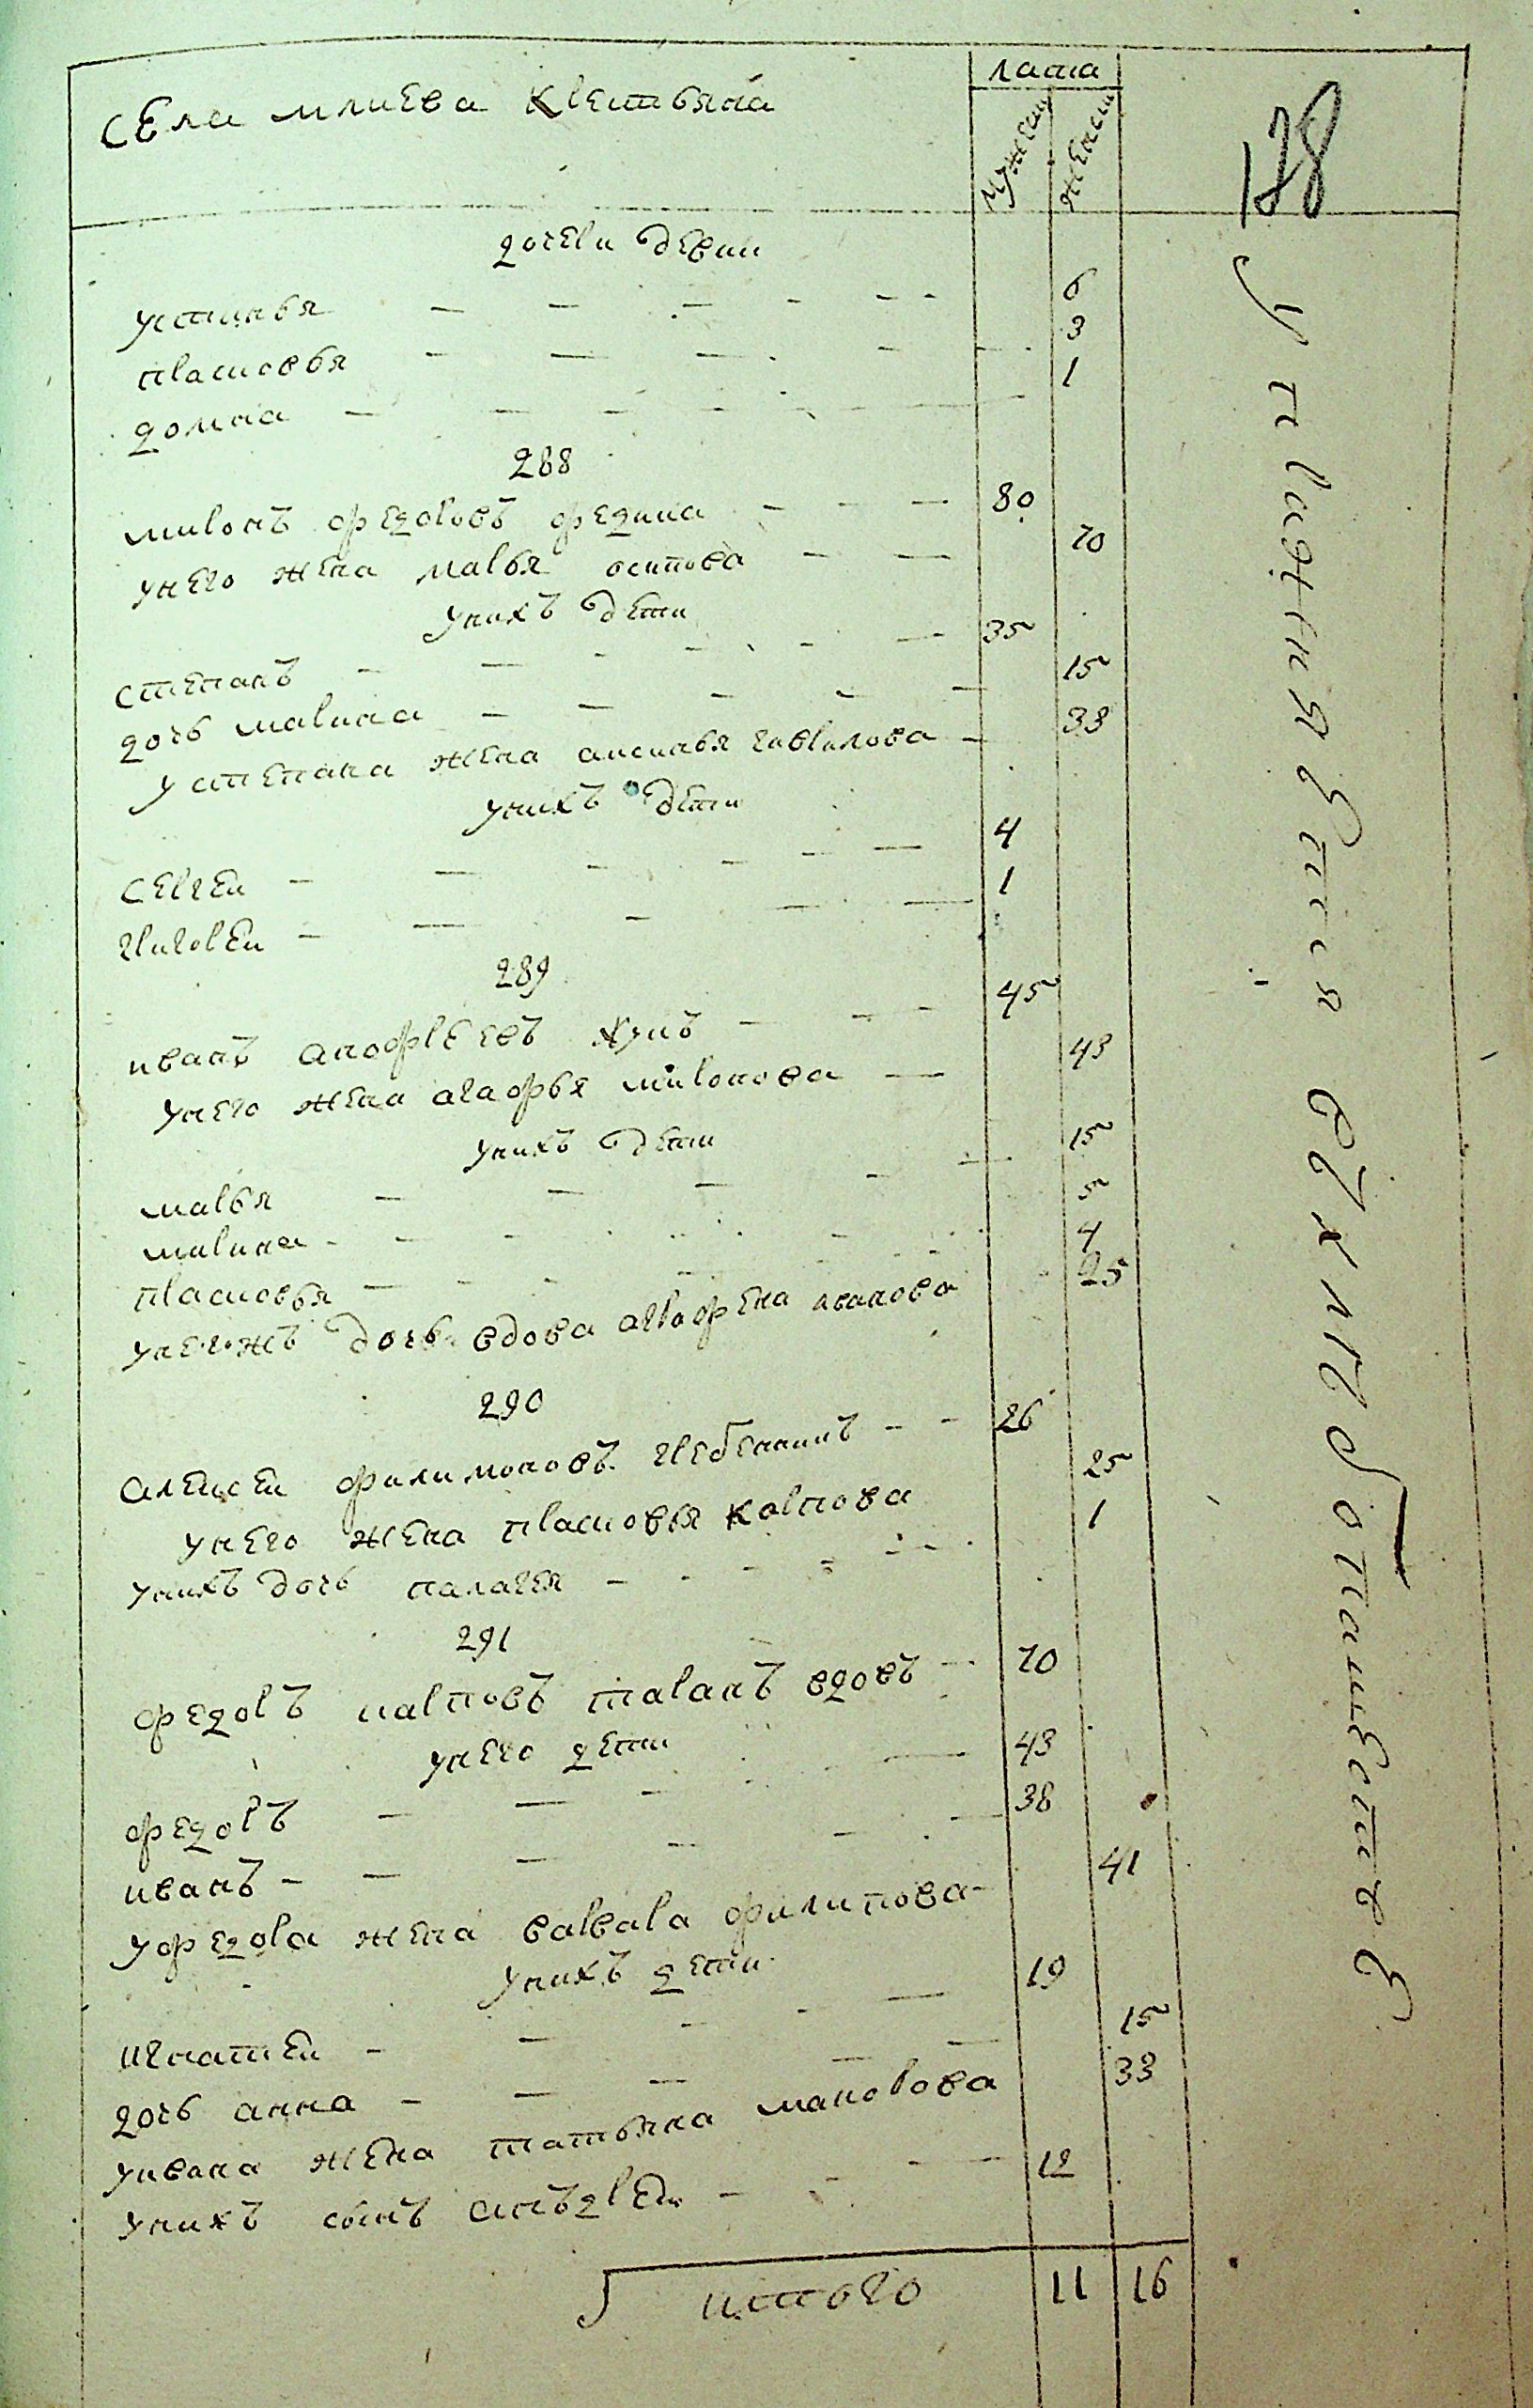 села млиева крестьяна
лата
мужеск
женск
178
дочери девки
устинья 6
прасковья 3
домна 1
288
миронъ федоровъ федина 80
унего жена марья осипова 70
унихъ дети
степанъ 35
дочь марина 15
устепана жена аксинья гаврилова 33
унихъ дети
сергеи 4
григореи 1
289
иванъ анофреевъ кунъ 45
унего жена агафья миронова 43
унихъ дети
марья 15
марина 5
прасковья 4
унегожъ дочь вдова аграфена иванова 25
290
алексеи филимоновъ гребенникъ 26
унего жена прасковья карпова 25
унихъ дочь палагея 1
291
федоръ карповъ таранъ вдовъ 70
унего дети
федоръ 43
иванъ 38
уфедора жена варвара филипова 41
унихъ дети
игнатеи 19
дочь анна 15
уивана жена татьяна макарова 33
унихъ сынъ андреи 12
итого 11 16